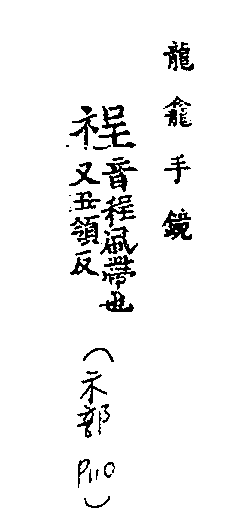 龍龕手鏡
䄇
音程帶也
又丑領反
(示部 P110)